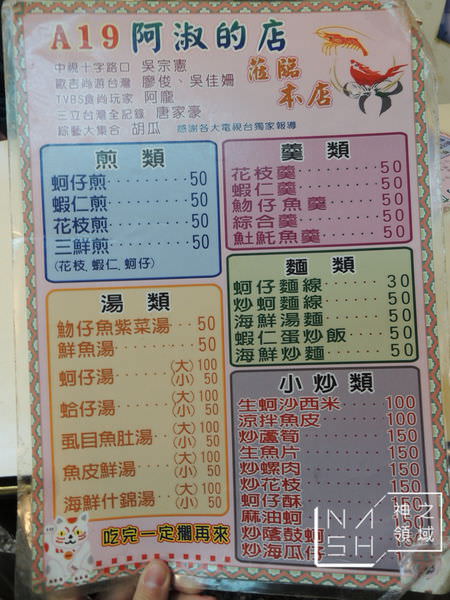 A19 阿淑的店
蒞臨
本店
中視十字路口 吳宗憲
歐吉尚遊台灣 廖俊、吳佳姍
TVBS食尚玩家 阿龐
三立台灣全記錄 唐家豪
綜藝大集合 胡瓜 感謝各大電視台獨家報導
煎類
蚵仔煎 50
蝦仁煎 50
花枝煎 50
三鮮煎 50
(花枝.蝦仁.蚵仔)
湯類
魩仔魚紫菜湯 50
鮮魚湯 50
蚵仔湯 (大)100 (小)50
蛤仔湯 (大)100 (小)50
虱目魚肚湯 (大)100 (小)50
魚皮鮮湯 (大)100 (小)50
海鮮什錦湯 (大)100 (小)50
吃完一定擱再來
羹類
花枝羹 50
蝦仁羹 50
魩仔魚羹 50
綜合羹 50
𩵚魠魚羹 50
麵類
蚵仔麵線 30
炒蚵麵線 50
海鮮湯麵 50
蝦仁蛋炒飯 50
海鮮炒麵 50
小炒類
生蚵沙西米 100
涼拌魚皮 100
炒蘆筍 150
生魚片 150
炒螺肉 150
炒花枝 150
蚵仔酥 150
麻油蚵
炒蔭鼓蚵
炒海瓜仔
NASH 神之領域